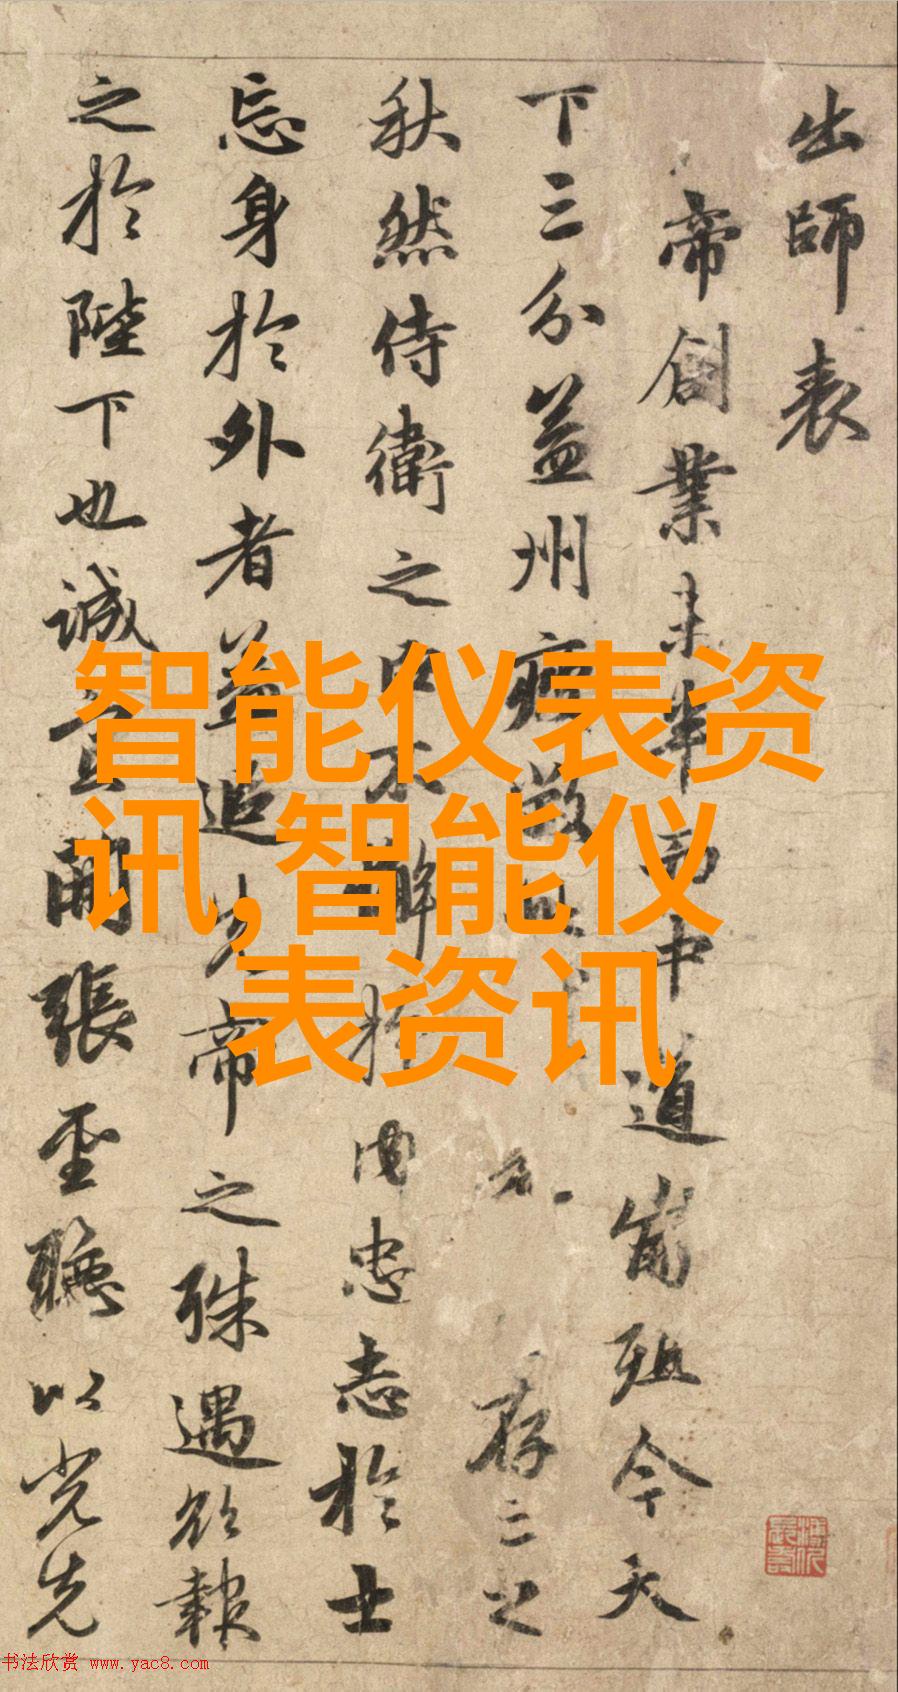 出師表
帝創業未半而中道崩殂今天
下三分益州疲敝 存亡之
秋然侍衛之臣不懈於内忠志於士
忘身於外者益追先帝之殊遇欲報
之於陛下也誠宜開張聖聽以光先
智能仪表资
讯,智能仪
表资讯
书法欣赏 www.yac8.com